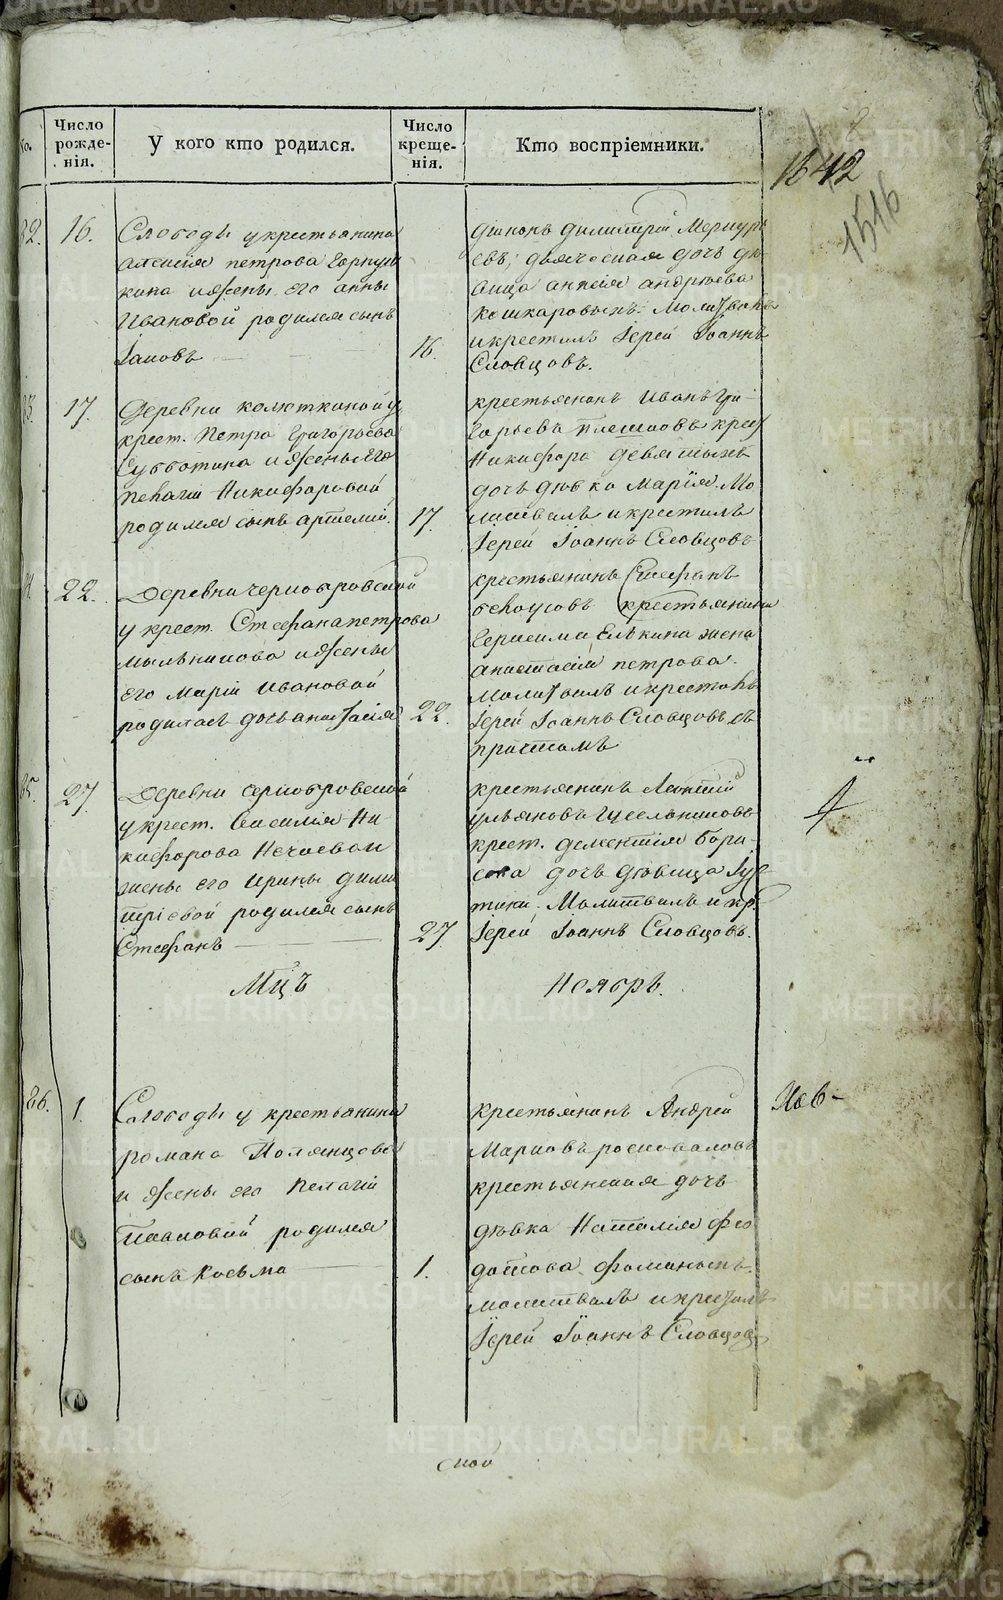 Число рожде-нія.
У кого кто родился.
Число креще-нія.
Кто воспріемники.
1642
1516
16.
Слободы у крестьянина
Алексія петрова
кина и жены его анны
Ивановой родился сынъ
Іаковъ
16.
діаконъ Димитрій Меркурь
евъ; дочь дѣ
вица андреева
кошкаровыхъ. Молитвовалъ
и крестилъ Іерей Іоаннъ
Словцовъ.
17.
Деревни колюткиной у
крест. Петра Григорьева
Субботина и жены его
пелагіи Никифоровой
родился сынъ артемій.
17.
крестьянинъ Иванъ Гри-
горьевъ крест
Никифора девятыхъ
дочь дѣвка Марія. Мо
литвалъ и крестилъ
Іерей Іоаннъ Словцовъ
22.
Деревни Чернобровской
у крест. Стефана петрова
мыльникова и жены
его Маріи Ивановой
родилась дочь анастасія
22.
крестьянинъ Стефанъ
белоусовъ крестьянина
Герасима Елькина жена
анастасія петрова.
молитвилъ и крестилъ
Іерей Іоаннъ Словцовъ съ
причтомъ
27
Деревни Чернобровской
у крест. Василія Ни
кифорова Нечаева и
жены его Ирины Дими
тріевой родился сынъ
Стефанъ
27
крестьянинъ
ульяновъ Гусельниковъ
крест. дементія Бори-
сова дочь дѣвица Іус
тина. Молитвилъ и кр.
Іерей Іоаннъ Словцовъ.
Мцъ
Ноябрь.
86.
1.
Слободы у крестьянина
романа Полянцова
и жены его Пелагіи
Ивановой родился
сынъ Косьма
1.
крестьянинъ Андрей
Марковъ росковаловъ
крестьянская дочь
дѣвка Наталія Фео
дотова Фоминыхъ.
молитвалъ и крестилъ
Іерей Іоаннъ Словцовъ
METRIKI.GASO-URAL.RU